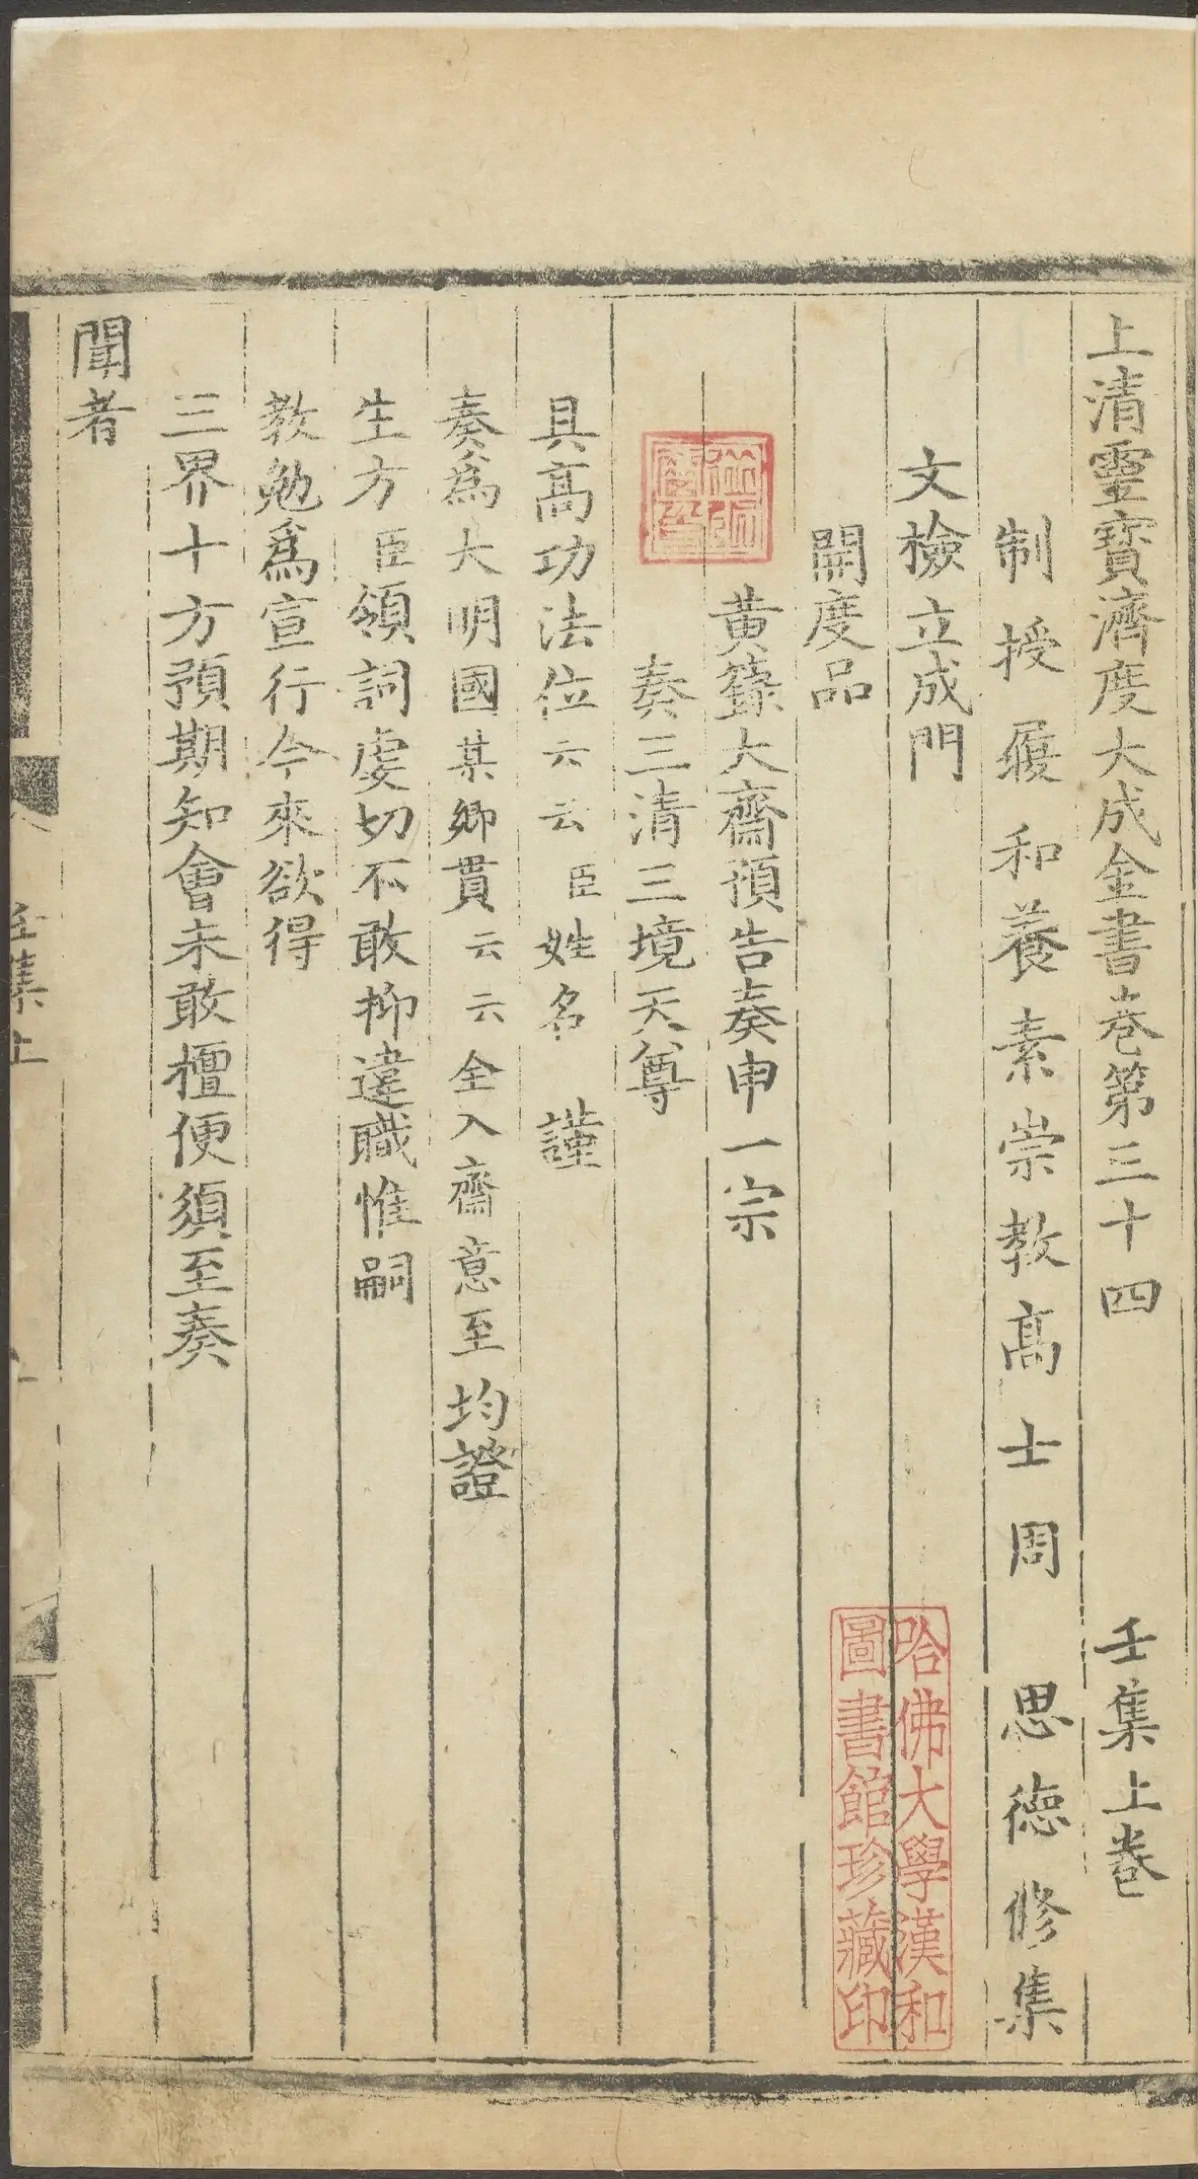 上清靈寶濟度大成金書卷第三十四 壬集上卷
制授履和養素崇教髙士周 思德修集
文檢立成門
開度品
黃籙大齋預告奏申一宗
奏三清三境天尊
具髙功法位云云臣姓名 謹
奏爲大明國某鄉貫云云全入齋意至均證
生方臣領詞虔切不敢抑違職惟嗣
教勉爲宣行今來欲得
三界十方預期知會未敢擅便須至奏
聞者
壬集上
哈佛大學漢和
圖書館珍藏印